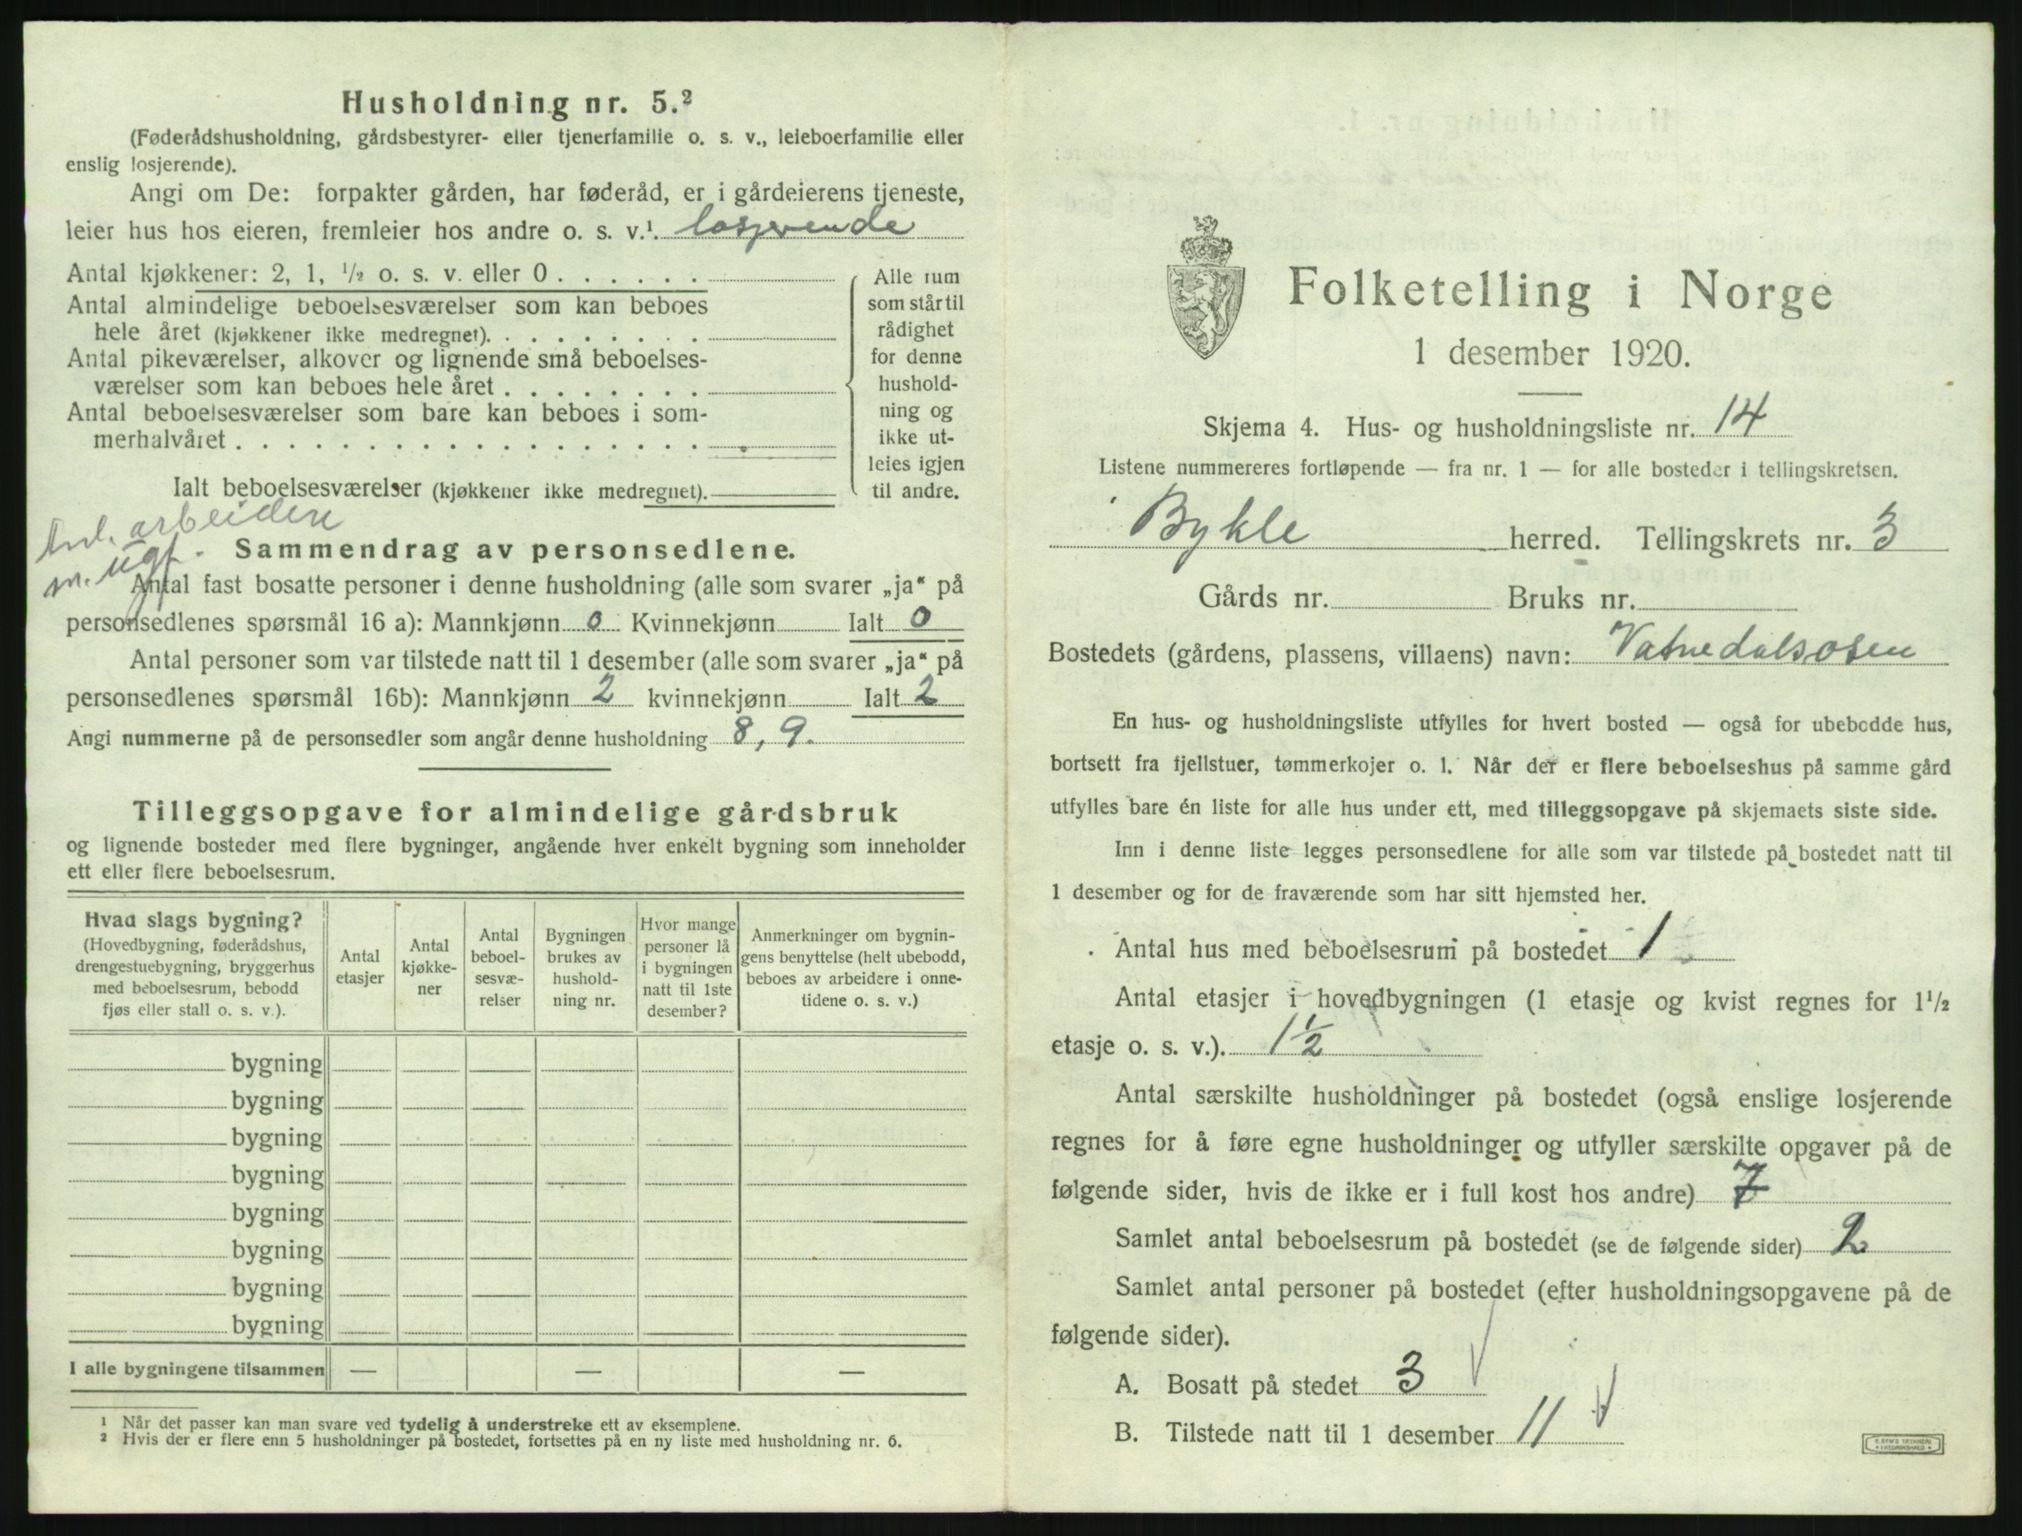 Husholdning nr. 5.²
(Føderådshusholdning, gårdsbestyrer- eller tjenerfamilie o. s. v., leieboerfamilie eller
enslig losjerende).
Angi om De: forpakter gården, har føderåd, er i gårdeierens tjeneste,
leier hus hos eieren, fremleier hos andre o. s. v.¹. losjerende
Antal kjøkkener: 2, 1, ½ o. s. v. eller 0 . . . . . .
Antal almindelige beboelsesværelser som kan beboes
hele året (kjøkkener ikke medregnet). . . . . . . . .
Antal pikeværelser, alkover og lignende små beboelses-
værelser som kan beboes hele året . . . . . . . .
Antal beboelsesværelser som bare kan beboes i som-
merhalvåret . . . . . . . . . . . . . . . . . .
Ialt beboelsesværelser (kjøkkener ikke medregnet).
Alle rum
som står til
rådighet
for denne
hushold-
ning og
ikke ut-
leies igjen
til andre.
arbeidere
m. ugf.
Sammendrag av personsedlene.
Antal fast bosatte personer i denne husholdning (alle som svarer „ja“ på
personsedlenes spørsmål 16 a): Mannkjønn 0 Kvinnekjønn Ialt 0
Antal personer som var tilstede natt til 1 desember (alle som svarer „ja“ på
personsedlenes spørsmål 16b): Mannkjønn 2 kvinnekjønn Ialt 2
Angi nummerne på de personsedler som angår denne husholdning 8, 9.
Tilleggsopgave for almindelige gårdsbruk
og lignende bosteder med flere bygninger, angående hver enkelt bygning som inneholder
ett eller flere beboelsesrum.
Hvad slags bygning?
(Hovedbygning, føderådshus,
drengestuebygning, bryggerhus
med beboelsesrum, bebodd
fjøs eller stall o. s. v.).
Antal
etasjer
Antal
kjøkke-
ner
Antal
beboel-
sesvæ-
relser
Bygningen
brukes av
hushold-
ning nr.
Hvor mange
personer lå
i bygningen
natt til 1ste
desember?
Anmerkninger om bygnin-
gens benyttelse (helt ubebodd,
beboes av arbeidere i onne-
tidene o. s. v.)
bygning
bygning
bygning
bygning
bygning
bygning
bygning
bygning
I alle bygningene tilsammen — — —
¹ Når det passer kan man svare ved tydelig å understreke ett av eksemplene.
² Hvis der er flere enn 5 husholdninger på bostedet, fortsettes på en ny liste med husholdning nr. 6.
Folketelling i Norge
1 desember 1920.
Skjema 4. Hus- og husholdningsliste nr. 14
Listene nummereres fortløpende — fra nr. 1 — for alle bosteder i tellingskretsen.
Bykle herred. Tellingskrets nr. 3
Gårds nr. Bruks nr.
Bostedets (gårdens, plassens, villaens) navn: Vatnedalsosen
En hus- og husholdningsliste utfylles for hvert bosted — også for ubebodde hus,
bortsett fra fjellstuer, tømmerkojer o. l. Når der er flere beboelseshus på samme gård
utfylles bare én liste for alle hus under ett, med tilleggsopgave på skjemaets siste side.
Inn i denne liste legges personsedlene for alle som var tilstede på bostedet natt til
1 desember og for de fraværende som har sitt hjemsted her.
Antal hus med beboelsesrum på bostedet 1
Antal etasjer i hovedbygningen (1 etasje og kvist regnes for 1½
etasje o. s. v.). 1½
Antal særskilte husholdninger på bostedet (også enslige losjerende
regnes for å føre egne husholdninger og utfyller særskilte opgaver på de
følgende sider, hvis de ikke er i full kost hos andre) 7
Samlet antal beboelsesrum på bostedet (se de følgende sider) 2
Samlet antal personer på bostedet (efter husholdningsopgavene på de
følgende sider).
A. Bosatt på stedet 3
B. Tilstede natt til 1 desember 11